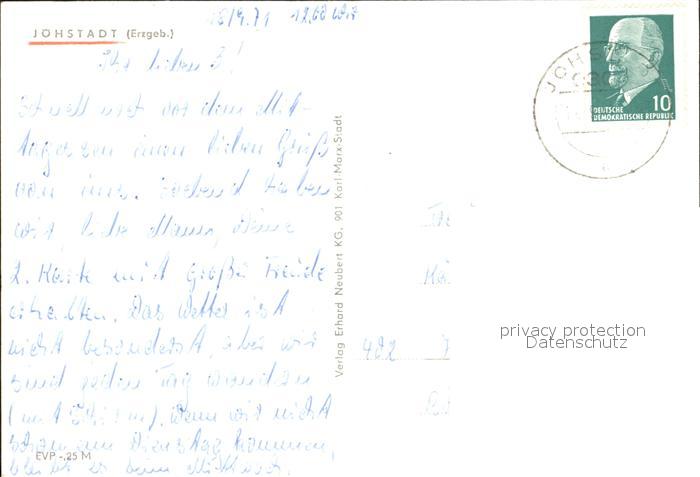 18/9.71 12,00 Uhr
JÖHSTADT (Erzgeb.)
Ihr lieben 3!
Schnell noch vor dem Mit-
tagessen einen lieben Gruß
von uns. Soeben haben
wir, liebe Mama, Deine
2. Karte mit großer Freude
erhalten. Das Wetter ist
nicht besonders, aber wir
sind jeden Tag wandern
(mit Schirm). Wenn wir nicht
schon am Dienstag kommen,
bleibt es beim Mittwoch.
EVP -,25 M
Verlag Erhard Neubert KG, 901 Karl-Marx-Stadt
JÖHS
10
DEUTSCHE
DEMOKRATISCHE REPUBLIK
402
privacy protection
Datenschutz